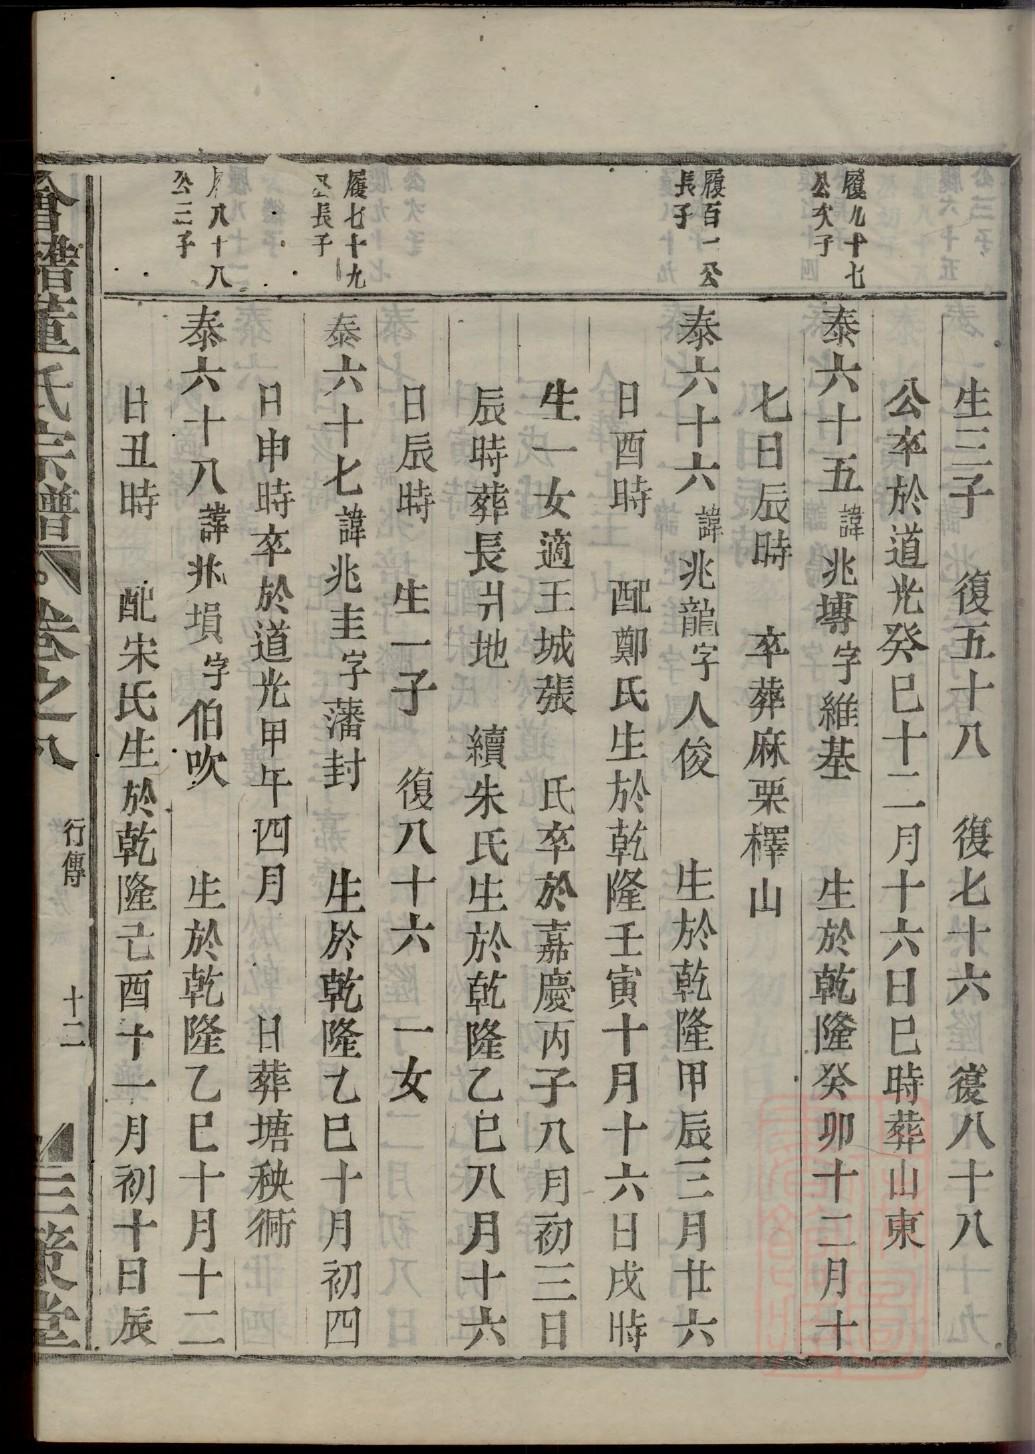 生三子　復五十八　復七十六　復八十八
公卒於道光癸巳十二月十六日巳時葬山東
履九十七
公次子
泰六十五諱兆塼字維基　生於乾隆癸卯十二月十
七日辰時　卒葬麻栗檡山
履百一公
長子
泰六十六諱兆龍字人俊　生於乾隆甲辰三月廿六
日酉時　配鄭氏生於乾隆壬寅十月十六日戌時
生一女適王城張　氏卒於嘉慶丙子八月初三日
辰時葬長引地　續朱氏生於乾隆乙巳八月十六
日辰時　生一子　復八十六　一女
履七十九
公長子
泰六十七諱兆圭字藩封　生於乾隆乙巳十月初四
日申時卒於道光甲午四月　日葬塘秧衕
履八十八
公三子
泰六十八諱兆塤字伯吹　生於乾隆乙巳十月十二
日丑時　配宋氏生於乾隆己酉十一月初十日辰
會稽董氏宗譜　卷之八　行傳　十二　三策堂